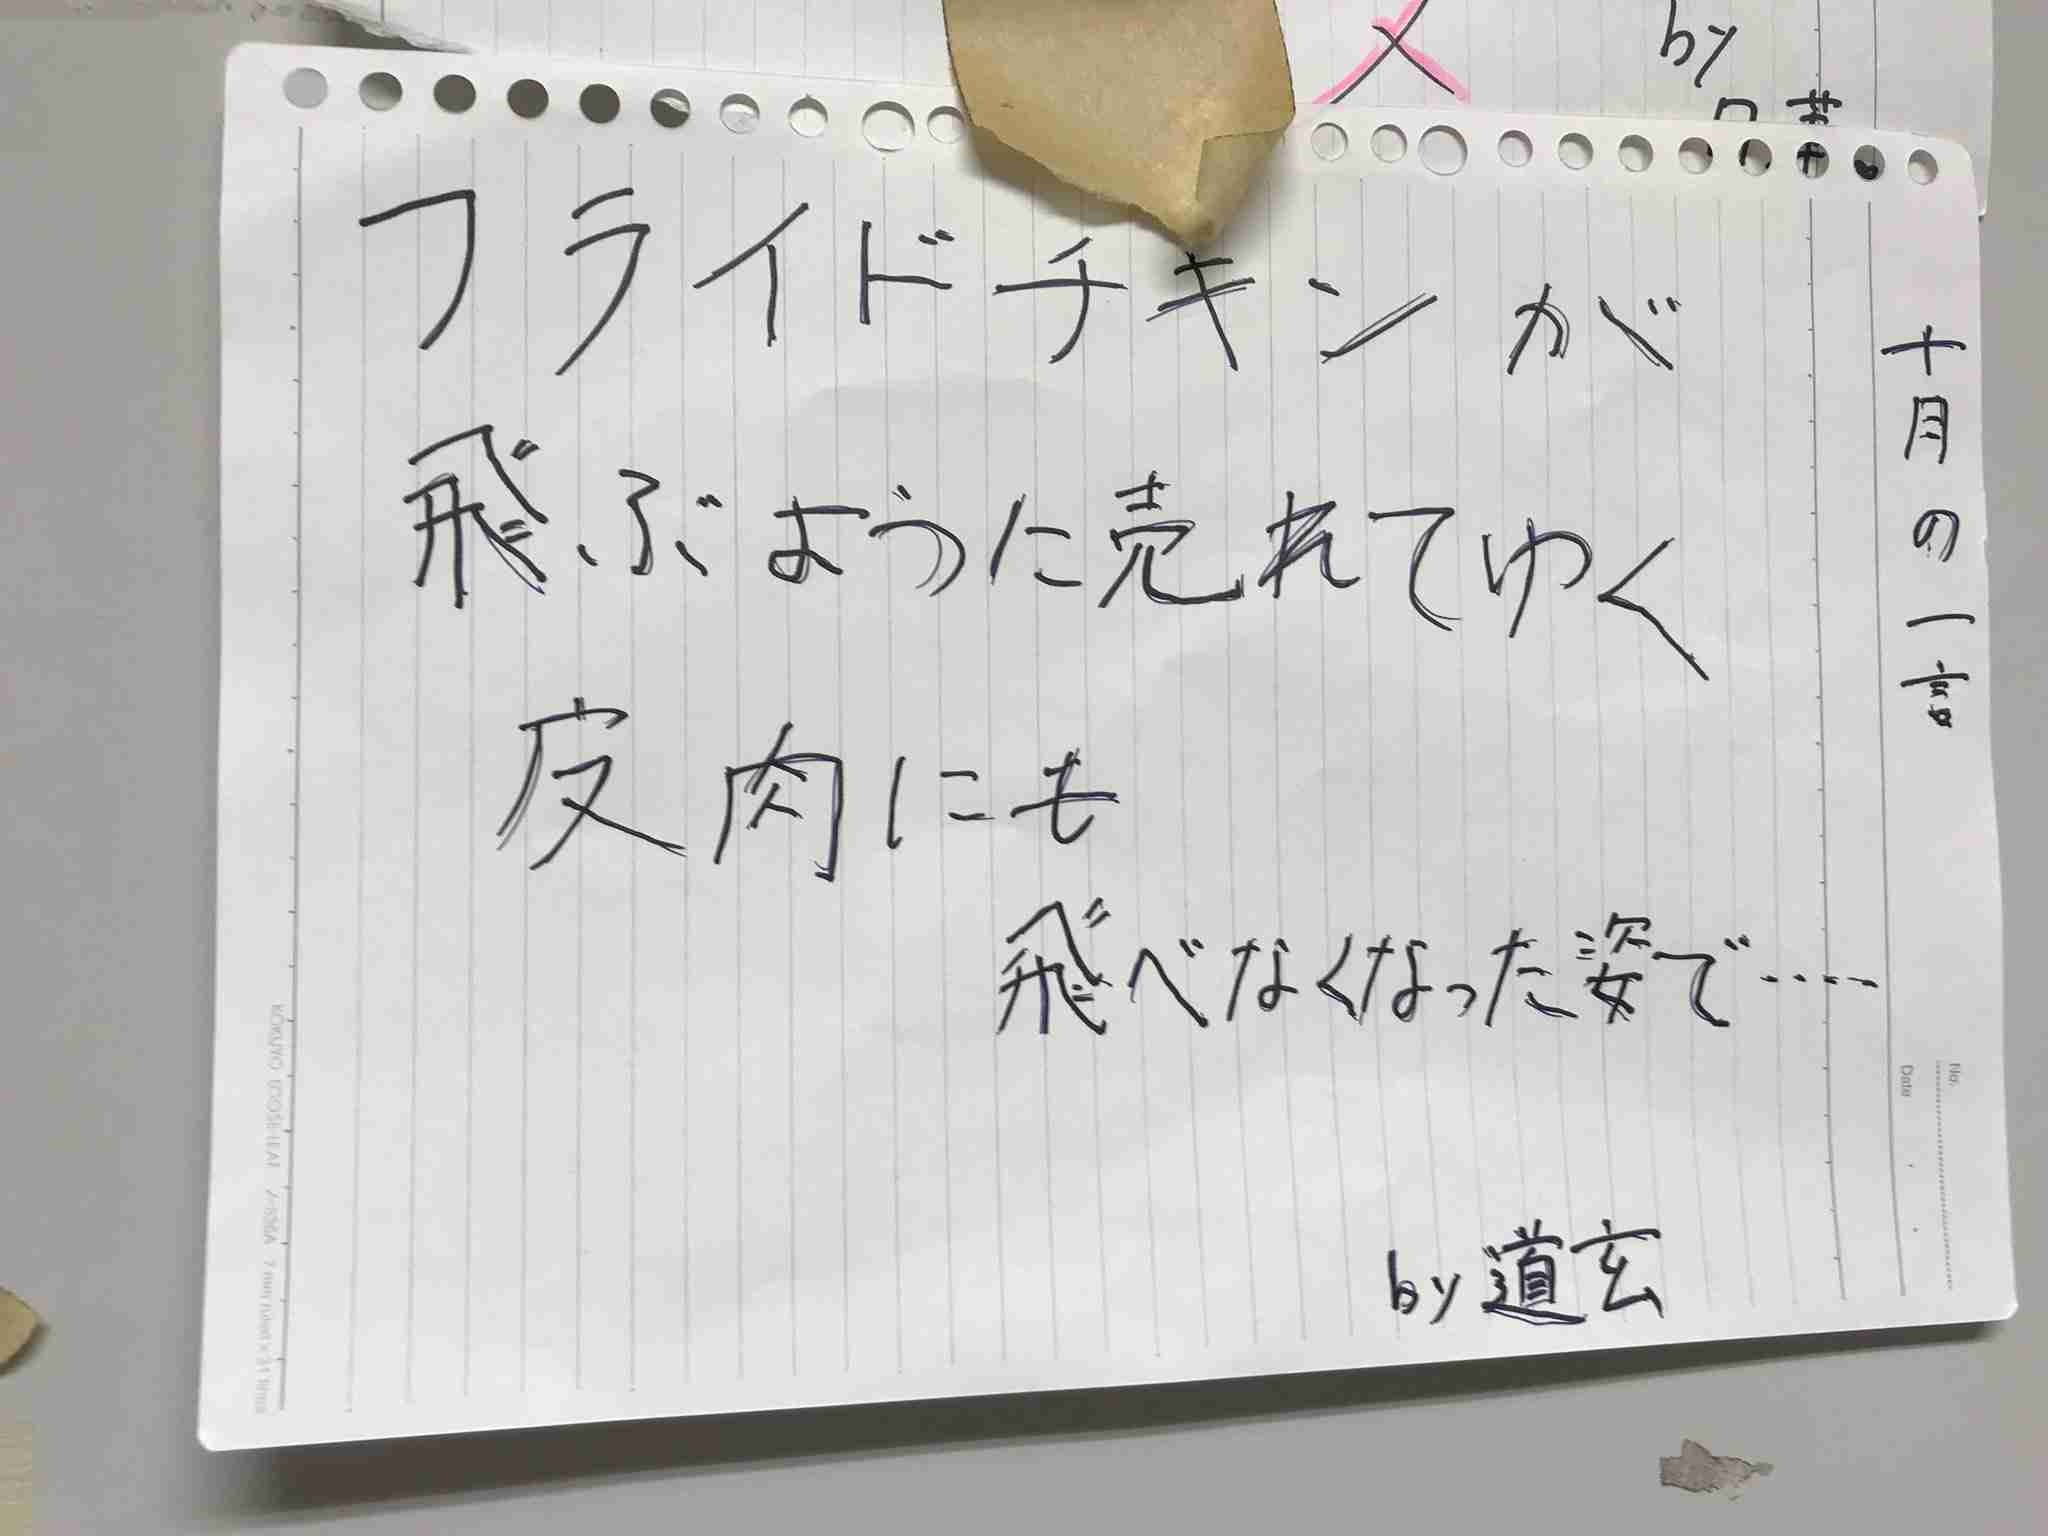 by
十月の一言
フライドチキンが
飛ぶように売れてゆく
皮肉にも
飛べなくなった姿で‥‥
by 道玄
No.
Date
KOKUYO LOOSE-LEAF ノ-836A 7 mm ruled × 31 lines